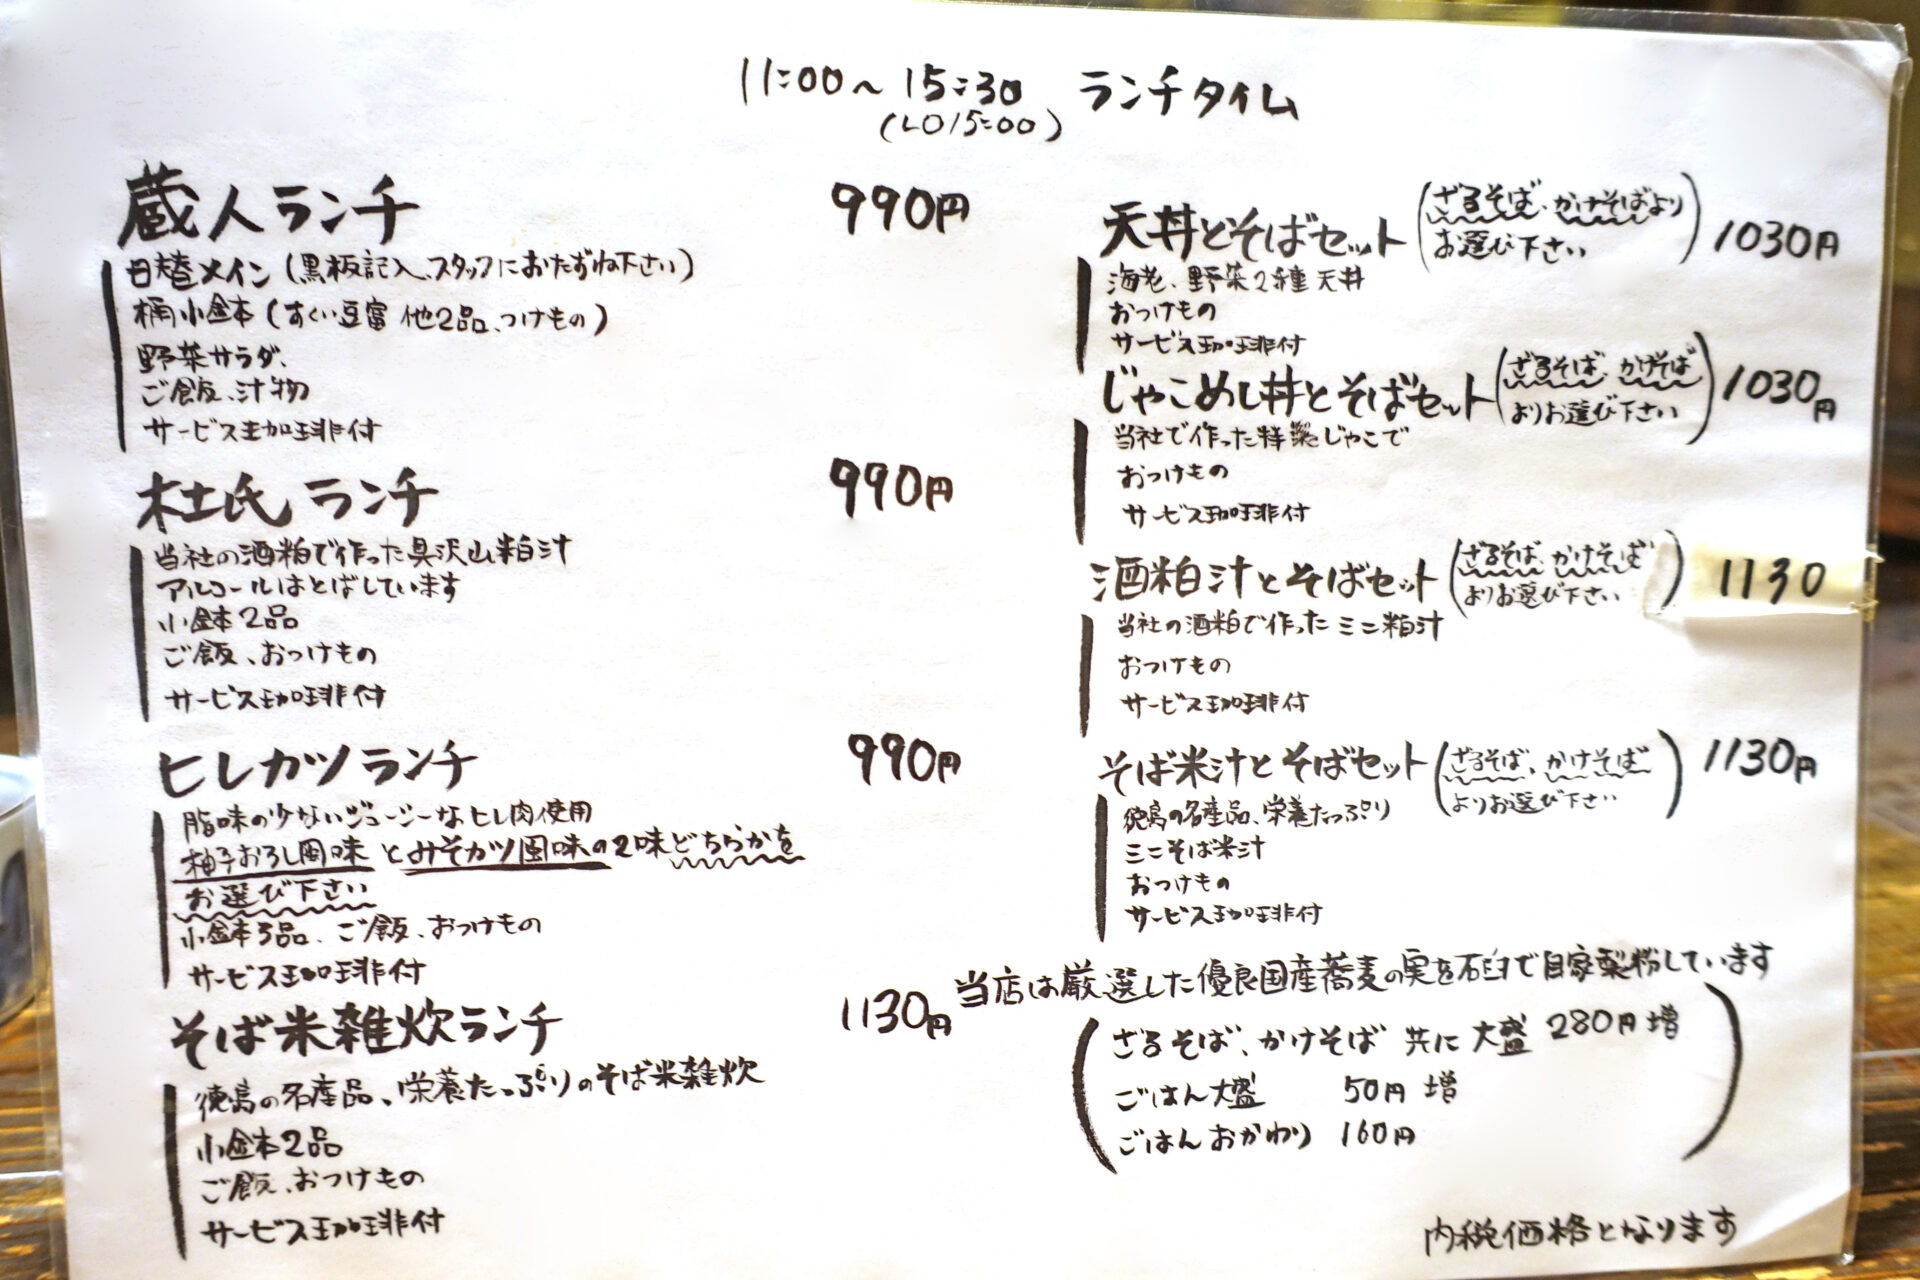 11:00〜15:30 ランチタイム
(LO15:00)
蔵人ランチ 990円
日替メイン(黒板記入、スタッフにおたずね下さい)
桶小鉢(すくい豆富 他2品、つけもの)
野菜サラダ、
ご飯、汁物
サービス珈琲付
杜氏ランチ 990円
当社の酒粕で作った具沢山粕汁
アルコールはとばしています
小鉢2品
ご飯、おつけもの
サービス珈琲付
ヒレカツランチ 990円
脂味の少ないジューシーなヒレ肉使用
柚子おろし風味とみそカツ風味の2味どちらかを
お選び下さい
小鉢3品、ご飯、おつけもの
サービス珈琲付
そば米雑炊ランチ 1130円
徳島の名産品、栄養たっぷりのそば米雑炊
小鉢2品
ご飯、おつけもの
サービス珈琲付
天丼とそばセット(ざるそば、かけそばより
お選び下さい) 1030円
海老、野菜2種 天丼
おつけもの
サービス珈琲付
じゃこめし丼とそばセット(ざるそば、かけそば
よりお選び下さい) 1030円
当社で作った特製じゃこで
おつけもの
サービス珈琲付
酒粕汁とそばセット(ざるそば、かけそば
よりお選び下さい) 1130
当社の酒粕で作ったミニ粕汁
おつけもの
サービス珈琲付
そば米汁とそばセット(ざるそば、かけそば
よりお選び下さい) 1130円
徳島の名産品、栄養たっぷり
ミニそば米汁
おつけもの
サービス珈琲付
当店は厳選した優良国産蕎麦の実を石臼で自家製粉しています
(ざるそば、かけそば 共に大盛 280円増
ごはん大盛 50円増
ごはんおかわり 160円)
内税価格となります